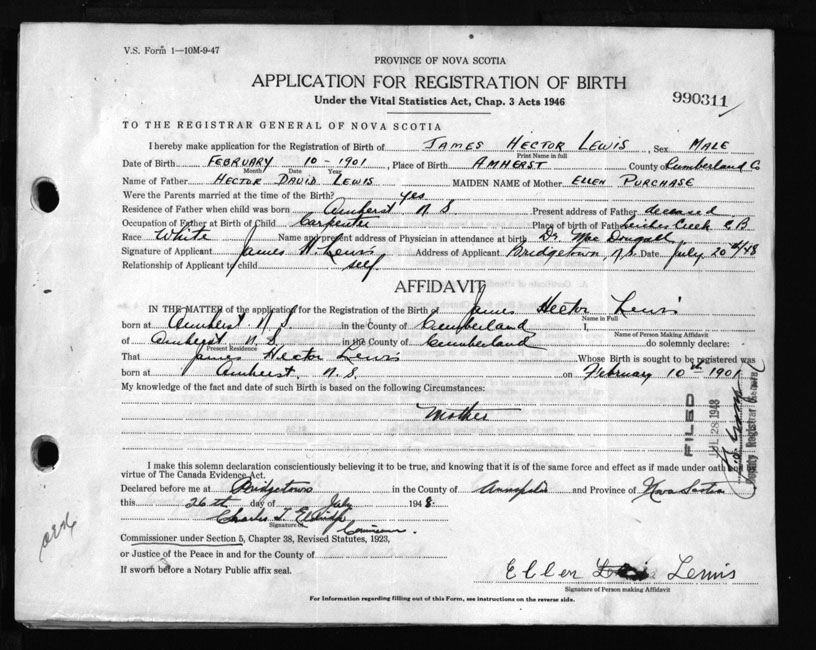 V.S. Form 1—10M-9-47
PROVINCE OF NOVA SCOTIA
APPLICATION FOR REGISTRATION OF BIRTH
Under the Vital Statistics Act, Chap. 3 Acts 1946
990311
TO THE REGISTRAR GENERAL OF NOVA SCOTIA
I hereby make application for the Registration of Birth of JAMES HECTOR LEWIS, Sex MALE
Print Name in full
Date of Birth FEBRUARY 10 - 1901, Place of Birth AMHERST County Cumberland Co
Month Date Year
Name of Father HECTOR DAVID LEWIS MAIDEN NAME of Mother ELLEN PURCHASE
Were the Parents married at the time of the Birth? Yes
Residence of Father when child was born Amherst N.S. Present address of Father deceased
Occupation of Father at Birth of Child Carpenter Place of birth of Father Leiches Creek C.B
Race White Name and present address of Physician in attendance at birth Dr MacDougall
Signature of Applicant James H. Lewis Address of Applicant Bridgetown, N.S. Date July 20th/48
Relationship of Applicant to child self.
AFFIDAVIT
IN THE MATTER of the application for the Registration of the Birth of James Hector Lewis
Name in Full
born at Amherst N.S in the County of Cumberland I,
Name of Person Making Affidavit
of Amherst N.S. in the County of Cumberland do solemnly declare:
Present Residence
That James Hector Lewis Whose Birth is sought to be registered was
born at Amherst N.S. on February 10th 1901
My knowledge of the fact and date of such Birth is based on the following Circumstances:
Mother
FILED
JUL 28 1948
Deputy Registrar General
I make this solemn declaration conscientiously believing it to be true, and knowing that it is of the same force and effect as if made under oath
virtue of The Canada Evidence Act.
Declared before me at Bridgetown in the County of Annapolis and Province of Nova Scotia
this 26th day of July 1948.
Charles T. 
Signature of
Commissioner under Section 5, Chapter 38, Revised Statutes, 1923,
or Justice of the Peace in and for the County of
If sworn before a Notary Public affix seal.
Ellen Lewis
Signature of Person making Affidavit
For Information regarding filling out of this Form, see instructions on the reverse side.